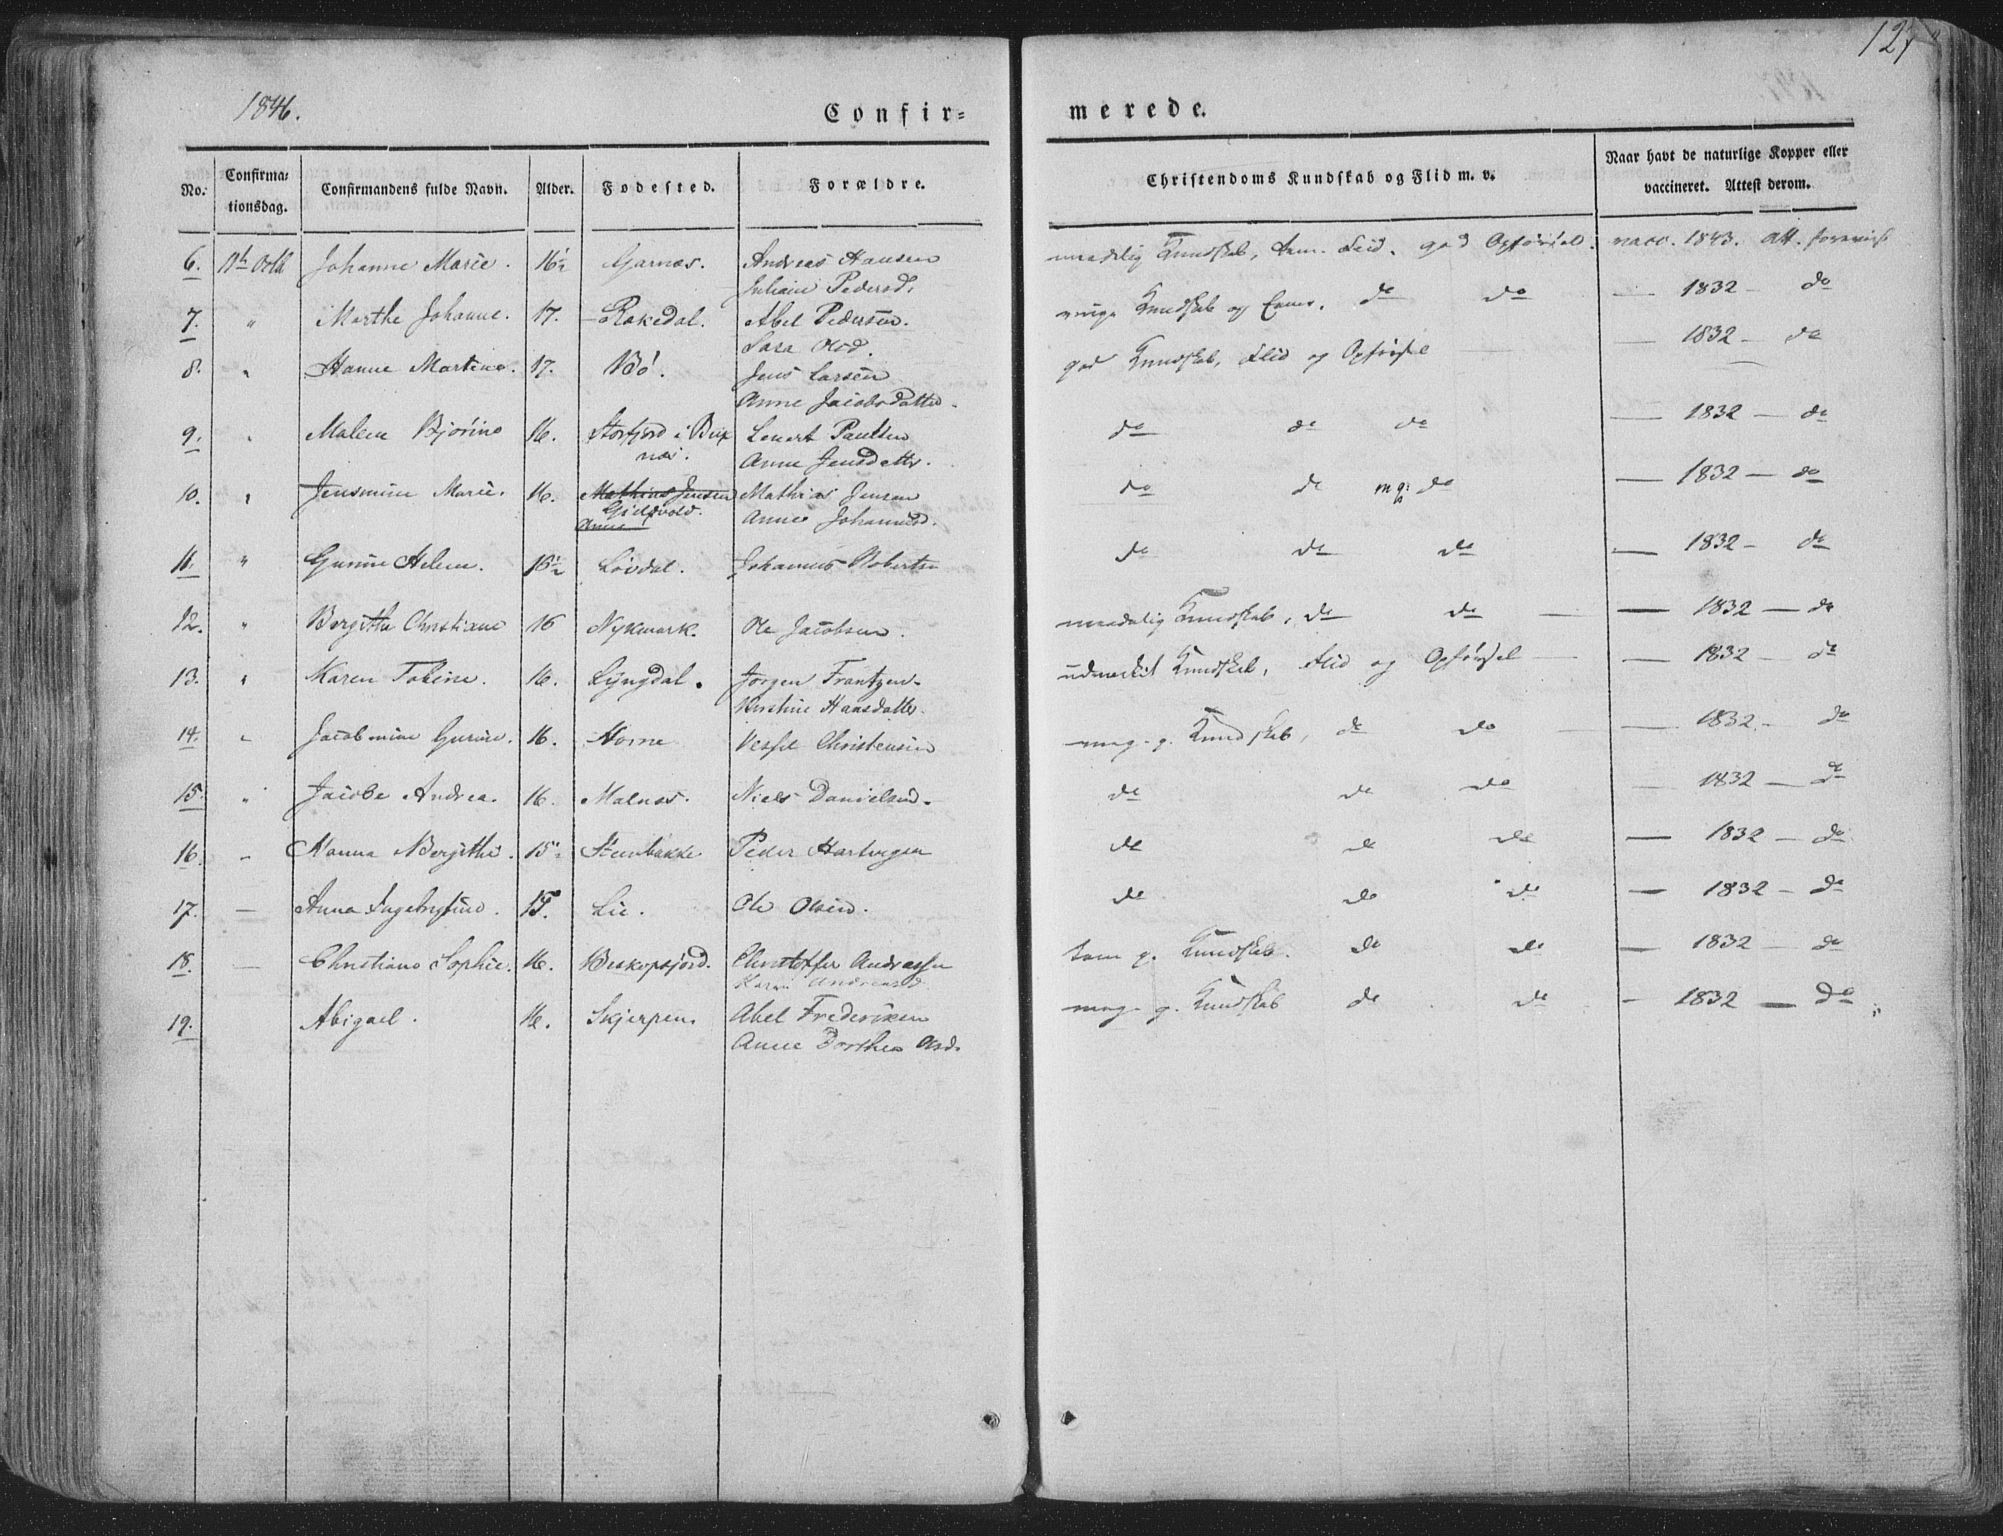 127
1846.
Confir= merede.
No. Confirma- tionsdag. Confirmandens fulde Navn. Alder. Fødested. Forældre. Christendoms Kundskab og Flid m. v. Naar havt de naturlige Kopper eller vaccineret. Attest derom.
6. 11te Octb Johanne Marie. 16½ Garnæs. Andreas Hansen maadelig Kundskab, tem. Flid. god Opførsel. vacc. 1843. Att. foreviist
Juliane Pedersd.
7. " Marthe Johanne. 17. Rakedal. Abel Pedersen. ringe Kundskab og Evner. do do — 1832 — do
Sara Olsd.
8. " Hanne Martine. 17. Bö. Jens Larsen god Kundskab, Flid og Opførsel — 1832 — do
Anne Jacobsdatter.
9. " Malene Bjørine 16. Storfjord i Bux Lenert Paulsen do do do — 1832 — do
næs. Anne Jensdattr.
10. " Jensmine Marie. 16. Mathias Jensen Mathias Jensen do do m g: do — 1832 — do
Gieldvold. Anne Johannesd.
Anne
11. " Gurine Helene. 16½ Løvdal. Johannes Robertsen do do do — 1832 — do
12. " Bergitha Christiane 16 Nykmark. Ole Jacobsen. maadelig Kundskab, do do — 1832 — do
13. " Karen Tobine. 16. Lyngdal. Jørgen Frantzen. udmærket Kundskab, Flid og Opførsel — 1832 — do
Kirstine Hansdatter.
14. " Jacobmine Gurine. 16. Horne Vessel Christensen meg. g. Kundskab, do do — 1832 — do
15. " Jacobe Andrea. 16. Malnæs. Niels Danielsen. do do do — 1832 — do
16. " Hanna Bergithe. 15½ Steenbakke Peder Hartvigsen do do do — 1832 — do
17. — Anna Ingebrigtine. 15. Lie. Ole Olsen. do do do — 1832 — do
18. — Christiane Sophie. 16. Beskopsjord. Christoffer Andreassen tem g. Kundskab. do do — 1832 — do
Karen Andreasd.
19. Abigael. 16. Skjerpen. Abel Frederiksen meg. g. Kundskab do do — 1832 — do
Anne Dorthea Olsd.